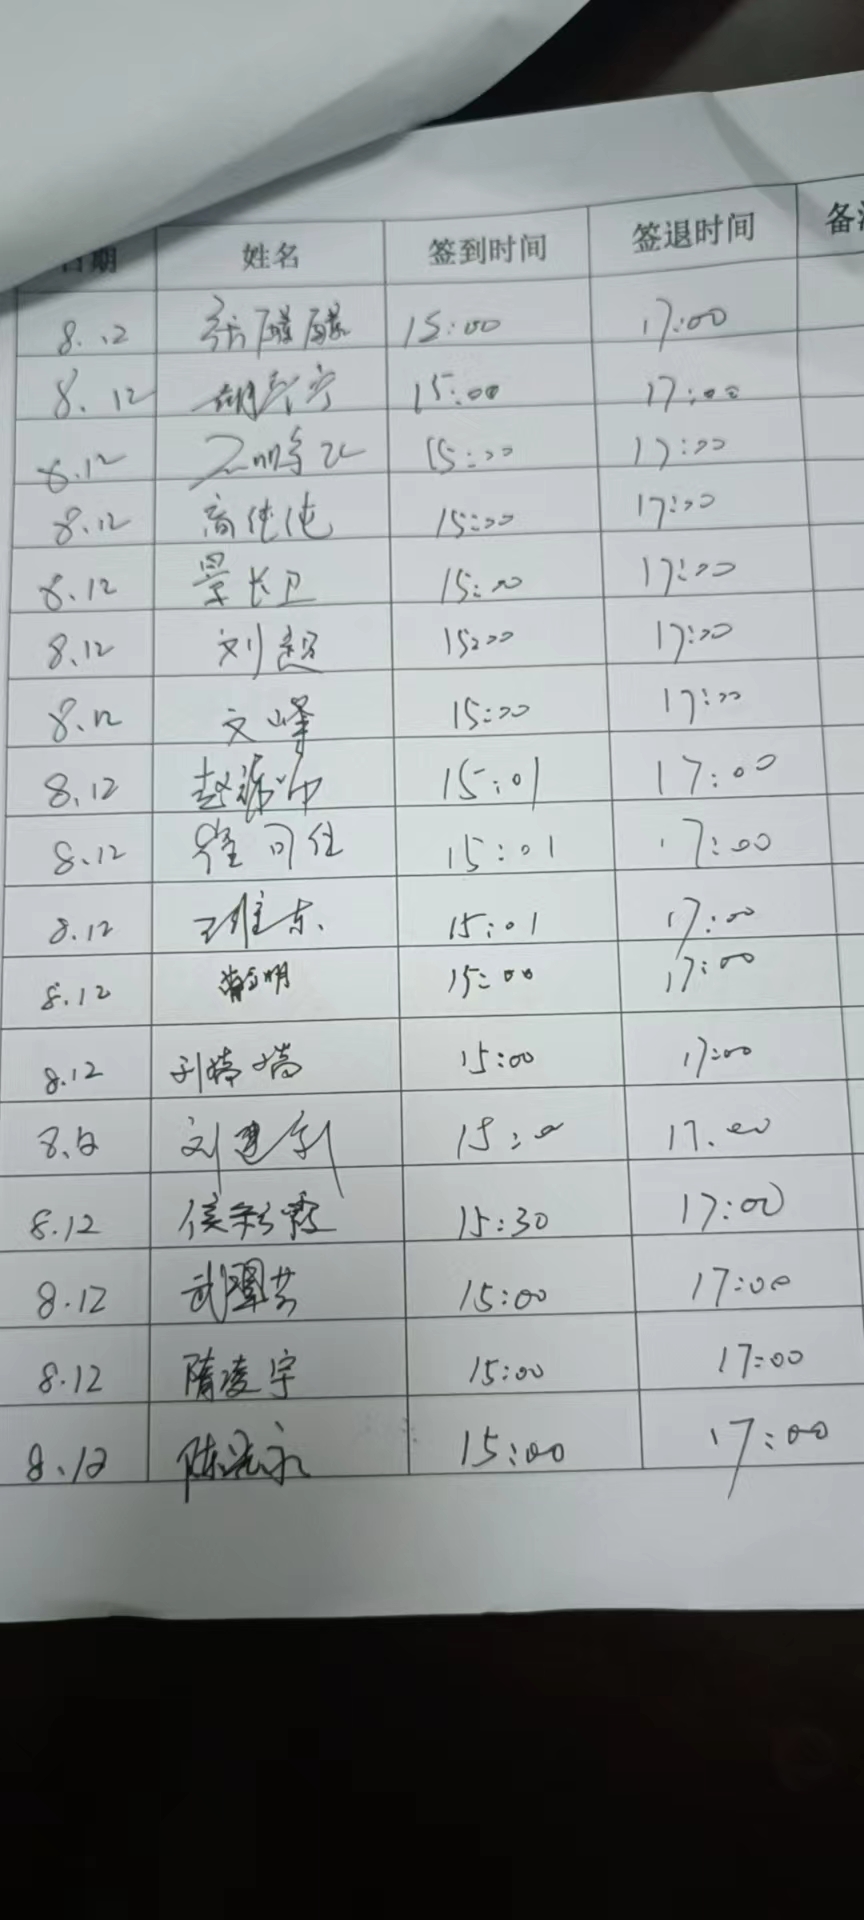 日期 姓名 签到时间 签退时间 备注
8.12 张醭醭 15:00 17:00
8.12 胡 宁 15:00 17:00
8.12 15:00 17:00
8.12 高纯纯 15:00 17:00
8.12 景长卫 15:00 17:00
8.12 刘超 15:00 17:00
8.12 文峰 15:00 17:00
8.12 赵 帅 15:01 17:00
8.12 崔可佳 15:01 17:00
8.12 王维东 15:01 17:00
8.12 明 15:00 17:00
8.12 刘婧婧 15:00 17:00
8.12 刘建新 15:00 17.00
8.12 侯彩霞 15:30 17:00
8.12 武翠芸 15:00 17:00
8.12 隋凌宇 15:00 17:00
8.12 陈 永 15:00 17:00